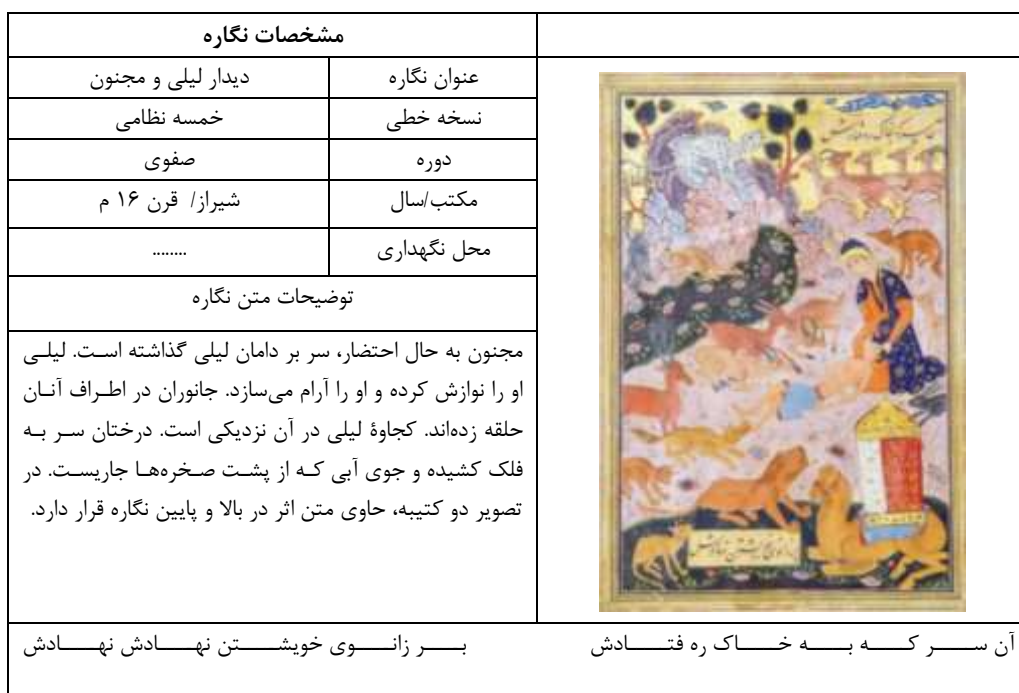 مشخصات نگاره
عنوان نگاره دیدار لیلی و مجنون
نسخه خطی خمسه نظامی
دوره صفوی
مکتب/سال شیراز/ قرن ۱۶ م
محل نگهداری ........
توضیحات متن نگاره
مجنون به حال احتضار، سر بر دامان لیلی گذاشته است. لیلی
او را نوازش کرده و او را آرام می‌سازد. جانوران در اطراف آنان
حلقه زده‌اند. کجاوۀ لیلی در آن نزدیکی است. درختان سر به
فلک کشیده و جوی آبی که از پشت صخره‌ها جاریست. در
تصویر دو کتیبه، حاوی متن اثر در بالا و پایین نگاره قرار دارد.
آن سر که به خاک ره فتادش بر زانوی خویشتن نهادش نهادش